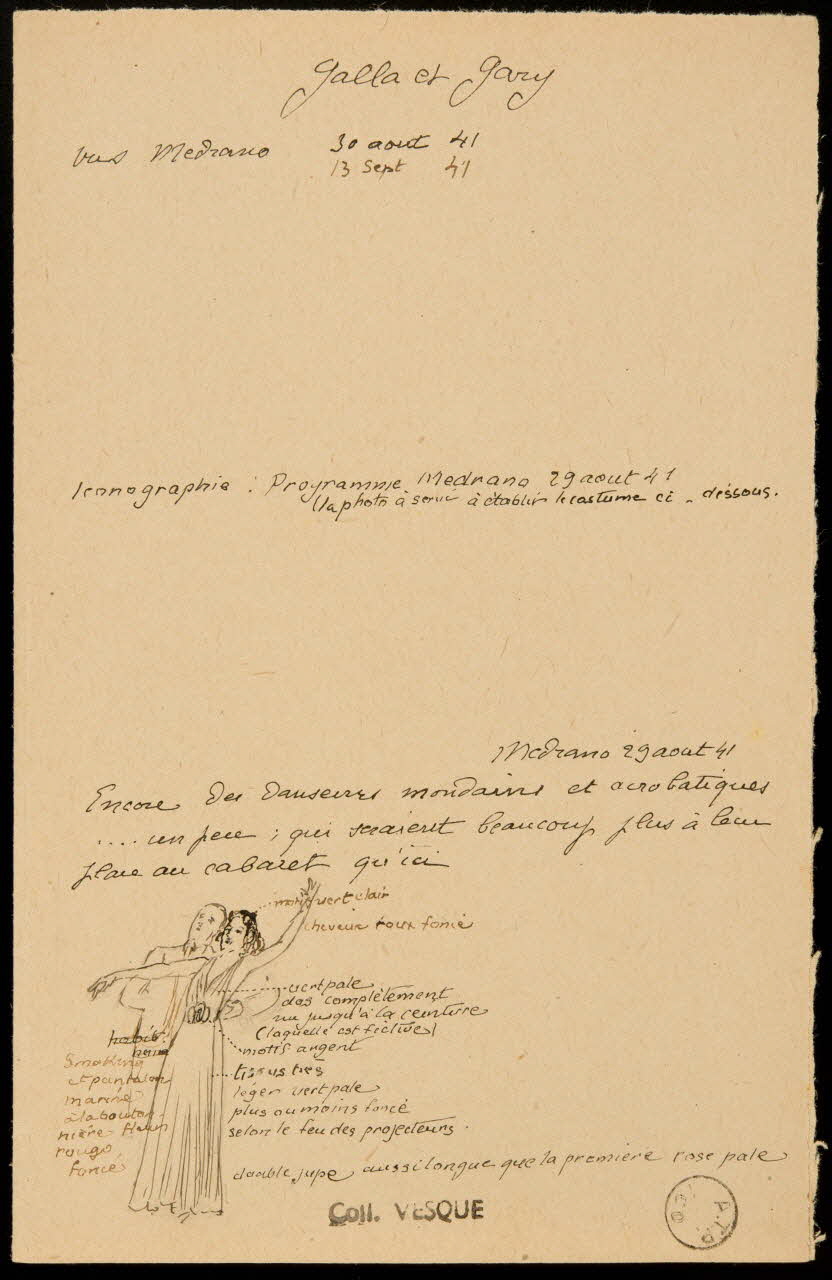 Galla et Gary
vus Medrano 30 aout 41
13 Sept 41
Iconographie : Programme Medrano 29 aout 41
(la photo à servi à établir le costume ci - dessous.
Medrano 29 aout 41
Encore des danseurs mondains et acrobatiques
.... un peu ; qui seraient beaucoup plus à leur
place au cabaret qu'ici
vert clair
cheveux roux foncé
vert pale
dos complètement
nu jusqu'à la ceinture
(laquelle est fictive)
motif argent
habit
noir
Smoking
et pantalon
marine
à la bouton-
nière fleur
rouge
foncé
tissus très
léger vert pale
plus ou moins foncé
selon le feu des projecteurs.
double jupe aussi longue que la première rose pale
Coll. VESQUE
A.T.P.